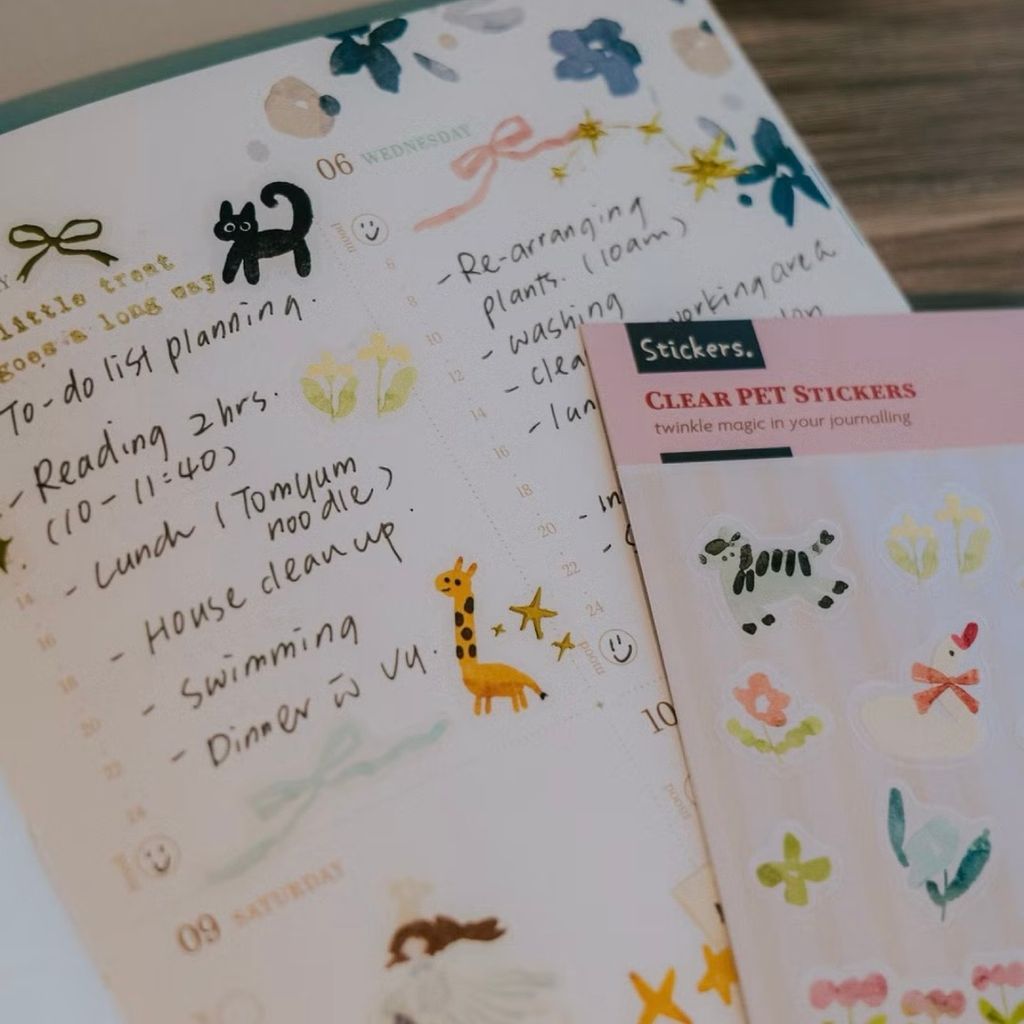 little treat
goes a long way
To-do list planning.
- Reading 2hrs.
(10 - 11:40)
- Lunch (Tomyum
noodle)
- House clean up.
- Swimming
- Dinner w̄ Vy.
14
16
18
20
22
24
09 SATURDAY
06 WEDNESDAY
mood
6
8
10
12
14
16
18
20
22
24
mood
- Re-arranging
plants. (10am)
- washing working area
- clea
- lun
- in
10
mood
Stickers.
CLEAR PET STICKERS
twinkle magic in your journalling